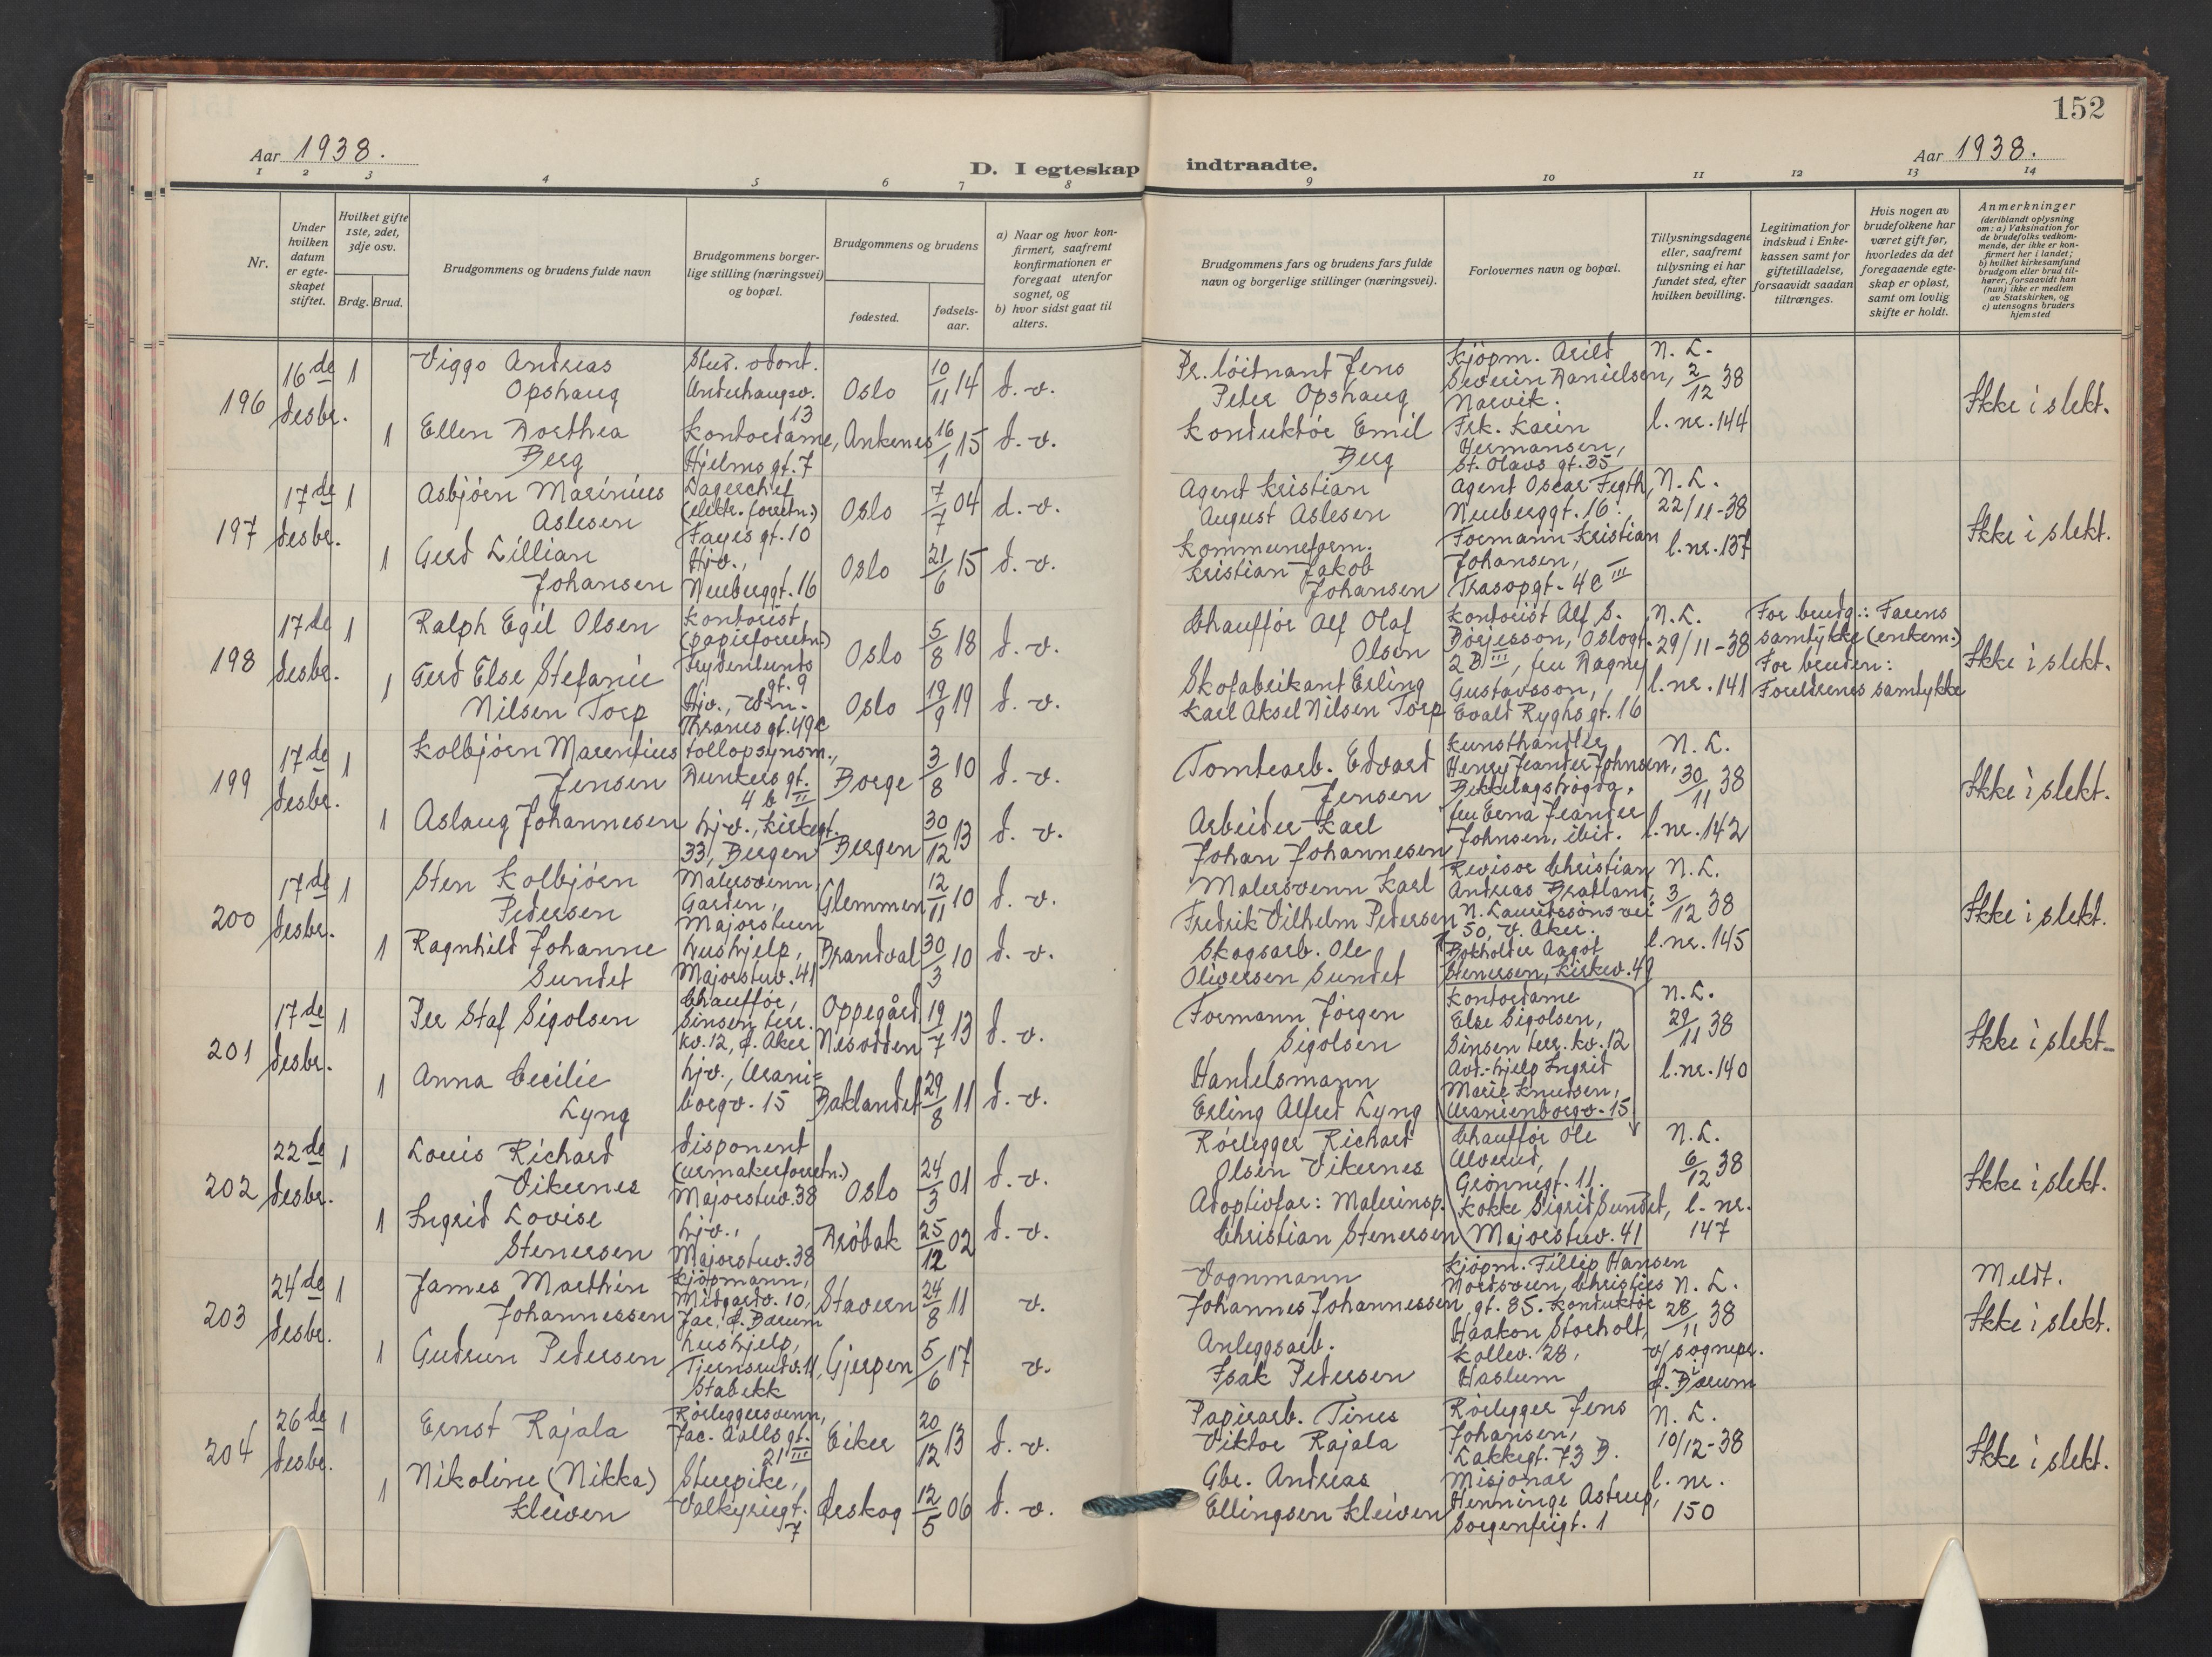 152
Aar 1938.
D. I egteskap indtraadte.
Aar 1938.
1 2 3 4 5 6 7 8 9 10 11 12 13 14
Nr.
Under hvilken datum er egteskapet stiftet.
Hvilket gifte 1ste, 2det, 3dje osv.
Brdg. Brud.
Brudgommens og brudens fulde navn
Brudgommens borgerlige stilling (næringsvei) og bopæl.
Brudgommens og brudens
fødested.
fødselsaar.
a) Naar og hvor konfirmert, saafremt konfirmationen er foregaat utenfor sognet, og
b) hvor sidst gaat til alters.
Brudgommens fars og brudens fars fulde navn og borgerlige stillinger (næringsvei).
Forlovernes navn og bopæl.
Tillysningsdagene eller, saafremt tillysning ei har fundet sted, efter hvilken bevilling.
Legitimation for indskud i Enkekassen samt for giftetilladelse, forsaavidt saadan tiltrænges.
Hvis nogen av brudefolkene har været gift før, hvorledes da det foregaaende egteskap er opløst, samt om lovlig skifte er holdt.
Anmerkninger
(deriblandt oplysning om: a) Vaksination for de brudefolks vedkommende, der ikke er konfirmert her i landet; b) hvilket kirkesamfund brudgom eller brud tilhører, forsaavidt han (hun) ikke er medlem av Statskirken, og c) utensogns bruders hjemsted
196 16de desbr. 1 Viggo Andreas Opshaug Stud. odont. Underhaugsv. 13 Oslo 10/11 14 d. v. Pr. löitnant Jens Peter Opshaug Kjöpm. Arild Severin Danielsen, Narvik. N. L. 2/12 38 Ikke i slekt.
1 Ellen Dorthea Berg Kontordame, Hjelms gt. 7 Ankenes 16/1 15 d. v. Konduktör Emil Berg Frk. Karin Hermansen, St. Olavs gt. 35 l. nr. 144
197 17de desbr. 1 Asbjörn Marinius Aslesen Lagerchef (elektr. forretn.) Fayes gt. 10 Oslo 7/7 04 d. v. Agent Kristian August Aslesen Agent Oscar Fegth, Neuberggt. 16. N. L. 22/11-38 Ikke i slekt.
1 Gerd Lillian Johansen Hjv., Neuberggt. 16 Oslo 21/6 15 d. v. Kommuneform. Kristian Jakob Johansen Formann Kristian Johansen, Trasopgt. 4c III l. nr. 137
198 17de desbr. 1 Ralph Egil Olsen Kontorist, (papirforretn.) Frydenlunds gt. 9 Oslo 5/8 18 d. v. Chaufför Alf Olaf Olsen Kontorist Alf S. Börjesson, Oslogt. 2 B III, fru Dagny Gustavsson, Evald Ryghs gt. 16 N. L. 29/11-38 For brudg.: Farens samtykke (enkem.) Ikke i slekt.
1 Gerd Else Stefanie Nilsen Torp Hjv., Thranes gt. 49c Oslo 19/9 19 d. v. Skofabrikant Erling Karl Aksel Nilsen Torp l. nr. 141 For bruden: Foreldrenes samtykke
199 17de desbr. 1 Kolbjörn Marentius Jensen tollopsynsm., Dunkers gt. 4 b II Borge 3/8 10 d. v. Tomtearb. Edvard Jensen Kunsthandler Henry Jeander Johnsen, Bekkelagshögda, N. L. 30/11 38 Ikke i slekt.
1 Aslaug Johannesen hjv., Kirkegt. 33, Bergen Bergen 30/12 13 d. v. Arbeider Karl Johan Johannesen fru Erna Jeander Johnsen, ibid. l. nr. 142
200 17de desbr. 1 Sten Kolbjörn Pedersen Malersvenn, Garden, Majorstuen Glemmen 12/11 10 d. v. Malersvenn Karl Fredrik Vilhelm Pedersen Revisor Christian Andreas Bratland, N. Lauritssöns vei 50, V. Aker. N. L. 3/12 38 Ikke i slekt.
1 Ragnhild Johanne Sundet hushjelp, Majorstuv. 41 Brandval 30/3 10 d. v. Skogsarb. Ole Oliversen Sundet Bokholder Aagot Stenersen, Kirkev. 49 l. nr. 145
201 17de desbr. 1 Per Staf Sigolsen Chaufför, Sinsen terr. kv. 12, Ö. Aker Oppegård Nesodden 19/7 13 d. v. Formann Jörgen Sigolsen Kontordame Else Sigolsen, Sinsen terr. kv. 12 N. L. 29/11 38 Ikke i slekt
1 Anna Cecilie Lyng hjv., Uranienborgv. 15 Baklandet 29/8 11 d. v. Handelsmann Erling Alfred Lyng Avd.-hjelp Ingrid Marie Knudsen, Uranienborgv. 15 l. nr. 140
202 22de desbr. 1 Louis Richard Vikernes disponent (urmakerforretn.) Majorstuv. 38 Oslo 24/3 01 d. v. Rörlegger Richard Olsen Vikernes Chaufför Ole Ulverud, Grönnegt. 11. N. L. 6/12 38 Ikke i slekt.
1 Ingrid Lovise Stenersen hjv., Majorstuv. 38 Dröbak 25/12 02 d. v. Adoptivfar: Malerinsp. Christian Stenersen Kokke Sigrid Sundet, Majorstuv. 41 l. nr. 147
203 24de desbr. 1 James Marthin Johannessen Kjöpmann, Midgardv. 10, Jar, Ö. Bærum Stavern 24/8 11 v. Vognmann Johannes Johannessen Kjöpm. Fillip Hansen Nordsveen, Christies gt. 35. N. L. 28/11 38 Meldt. Ikke i slekt.
1 Gudrun Pedersen hushjelp, Tjernsrudv. 11, Stabekk Gjerpen 5/6 17 v. Anleggsarb. Isak Pedersen Konduktör Haakon Storholt, Kollev. 28, Haslum v/ sognepr. i Ö. Bærum
204 26de desbr. 1 Ernst Rajala Rörleggersvenn, Jac. Aalls gt. 21 III Eiker 20/12 13 d. v. Papirarb. Tinus Viktor Rajala Rörlegger Jens Johansen, Lakkegt. 73 B. N. L. 10/12-38 Ikke i slekt.
1 Nikoline (Nikka) Kleiven Stuepike, Valkyriegt. 7 Örskog 12/5 06 d. v. Gbr. Andreas Ellingsen Kleiven Misjonær Henninge Astrup, Sorgenfrigt. 1 l. nr. 150